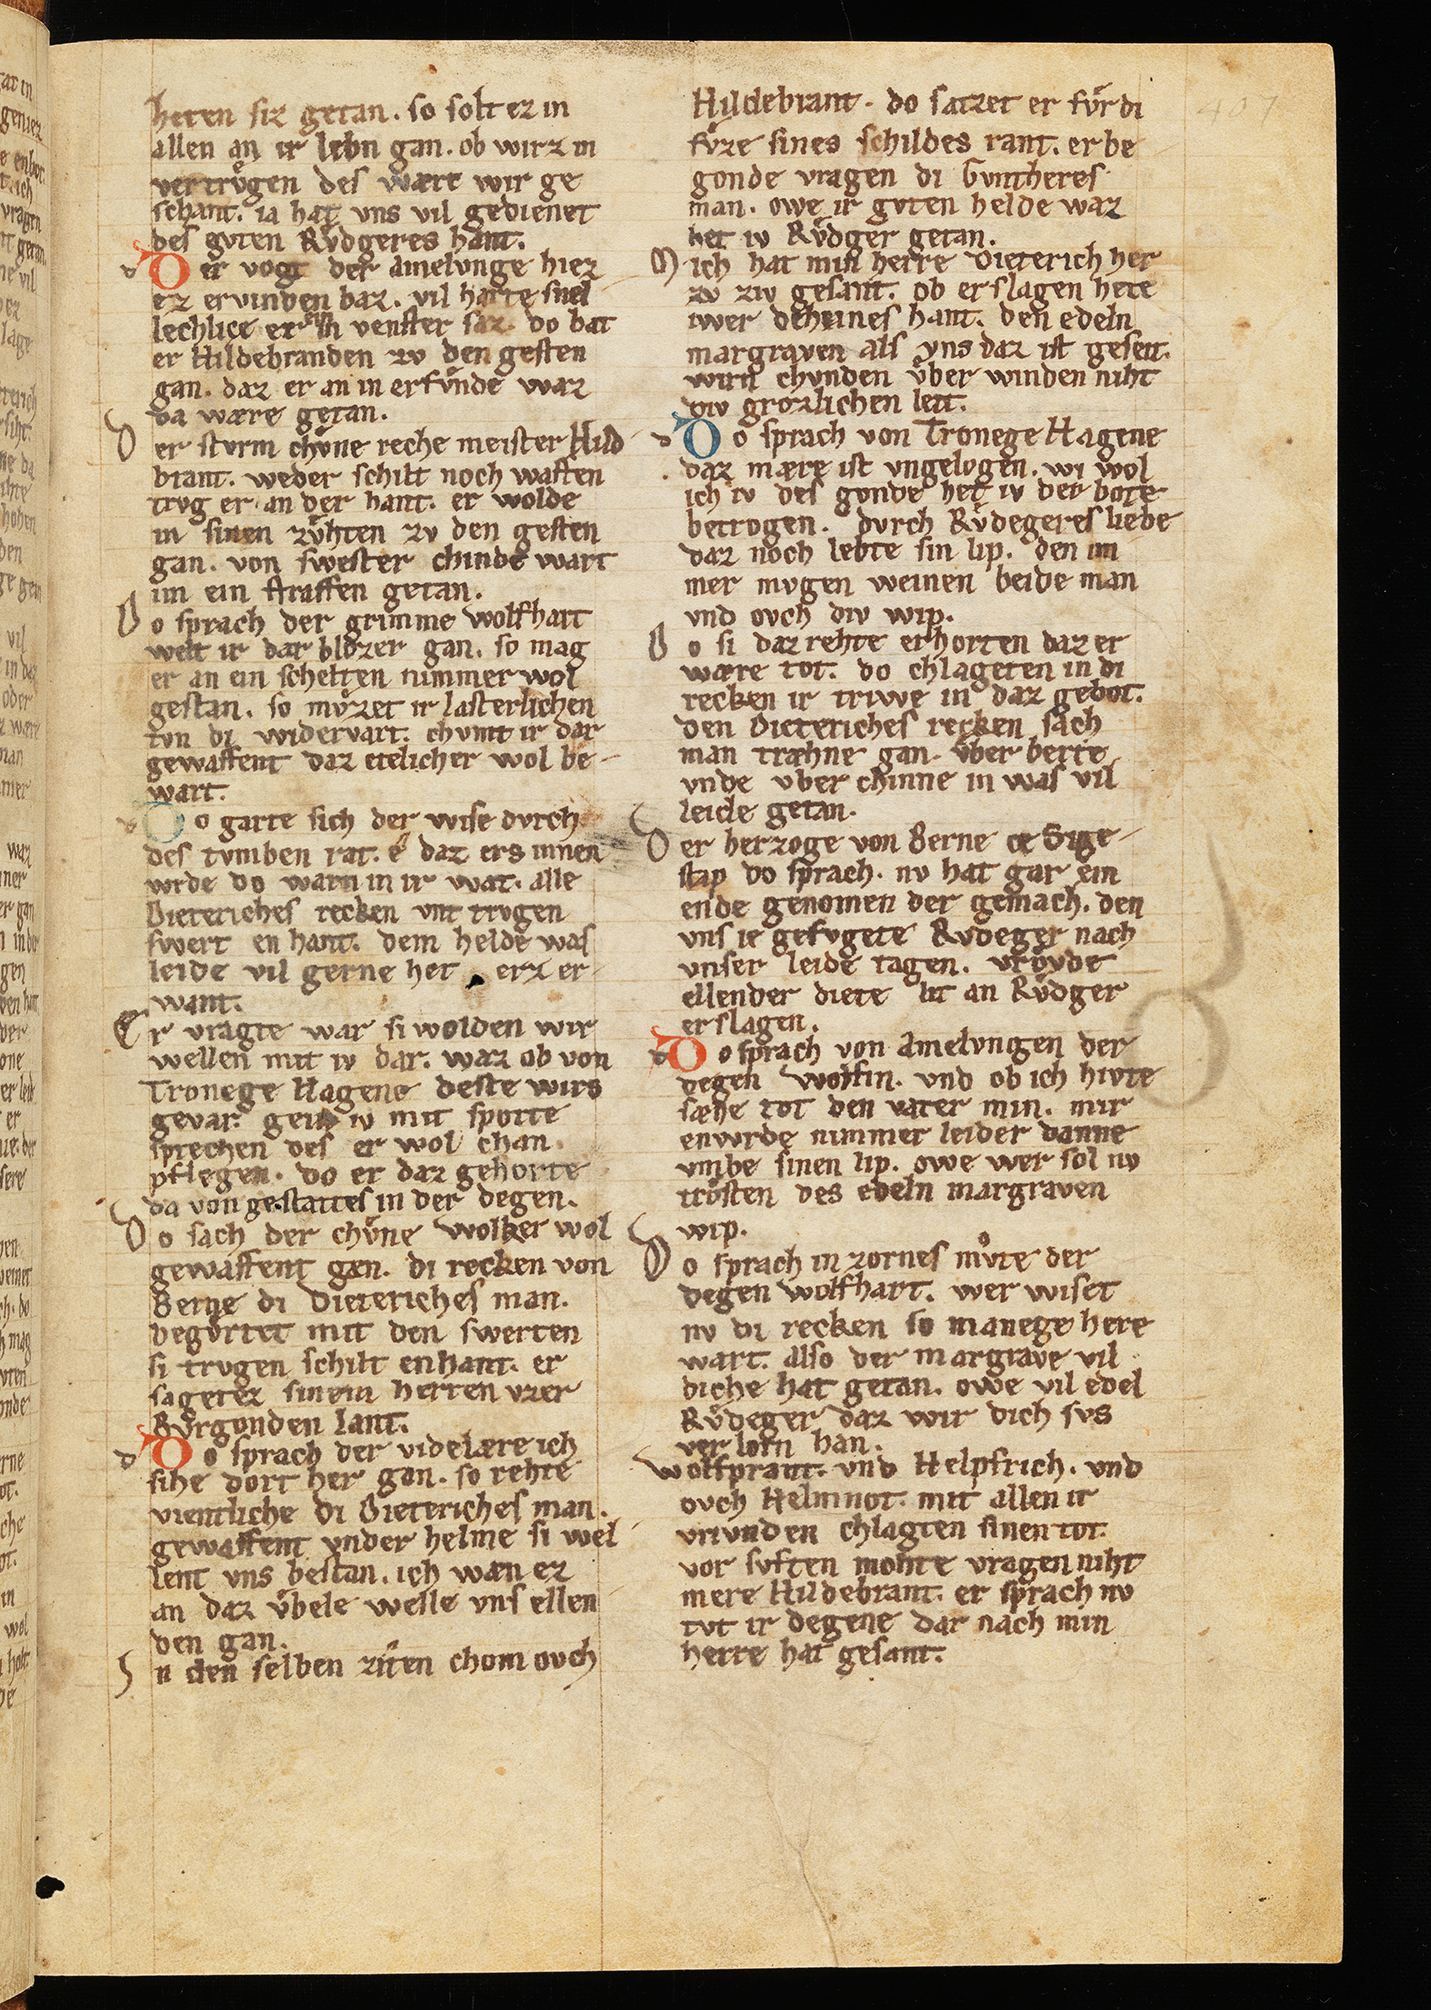 heten siz getan. so solt ez in
allen an ir lebn gan. ob wirz in
vertrvͦgen des wære wir ge
schant. ia hat vns vil gedienet
des gvten Rvͦdgeres hant.
Der vogt der amelvnge hiez
ez ervinden baz. vil harte snel
lechlice er in venster saz. do bat
er Hildebranden zv den gesten
gan. daz er an in erfvnde waz
da wære getan.
Der stvrm chvͤne reche meister Hild
brant. weder schilt noch waffen
trvg er an der hant. er wolde
in sinen zvͤhten zv den gesten
gan. von swester chinde wart
im ein straffen getan.
Do sprach der grimme wolfhart
welt ir dar blozer gan. so mag
er an ein schelten nimmer wol
gestan. so mvͤzet ir lasterlichen
tvn di widervart. chvmt ir dar
gewaffent daz etelicher wol be
wart.
Do garte sich der wise dvrch
des tvmben rat. e daz ers innen
wrde do warn in ir wat. alle
Dieteriches recken vnt trvgen
swert en hant. dem helde was
leide vil gerne het erz er
want.
Er vragte war si wolden wir
wellen mit iv dar. waz ob von
Tronege Hagene deste wirs
gevar. gein iv mit spotte
sprechen des er wol chan
pflegen. do er daz gehorte
da von gestattes in der degen.
Do sach der chvͤne wolker wol
gewaffent gan. di recken von
Berne di Dieteriches man.
begvrtet mit den swerten
si trvgen schilt enhant. er
sagetez sinem herren vzer
Bvrgonden lant.
Do sprach der videlære ich
sihe dort her gan. so rehte
vientliche di Dieteriches man.
gewaffent vnder helme si wel
lent vns bestan. ich wæn ez
an daz vbele welle vns ellen
den gan.
In den selben ziten chom ovch
Hildebrant. do satzet er fvr di
fvͤze sines schildes rant. er be
gonde vragen di Gvntheres
man. owe ir gvten helde waz
het iv Rvͤdger getan.
Mich hat min herre Dieterich her
zv ziv gesant. ob erslagen hete
iwer deheines hant. den edeln
margraven als vns daz ist geseit.
wirn chvnden vber winden niht
div grozlichen leit.
Do sprach von Tronege Hagene
daz mære ist vngelogen. wi wol
ich iv des gvnde het iv der bote
betrogen. dvrch Rvͤdegeres liebe
daz noch lebte sin lip. den im
mer mvgen weinen beide man
vnd ovch div wip.
Do si daz rehte erhorten daz er
wære tot. do chlageten in di
recken ir triwe in daz gebot.
den Dieteriches recken sach
man træhne gan. vber berte
vnde vber chinne in was vil
leide getan.
Der herzoge von Berne Sige
stap do sprach. nv hat gar ein
ende genomen der gemach. den
vns ie gefvgete Rvdeger nach
vnser leide tagen. vrovde
ellender diete lit an Rvͤdger
erslagen.
Do sprach von Amelvngen der
degen wolfin. vnd ob ich hivte
sæhe tot den vater min. mir
enwrde nimmer leider danne
vmbe sinen lip. owe wer sol nv
trosten des edeln margraven
wip.
Do sprach in zornes mvͦte der
degen wolfhart. wer wiset
nv di recken so manege here
vart. also der margrave vil
diche hat getan. owe vil edel
Rvͤdeger daz wir dich svs
verlorn han.
wolfprant. vnd Helpfrich. vnd
ovch Helmnot. mit allen ir
vrivnden chlagten sinen tot.
vor svften mohte vragen niht
mere Hildebrant. er sprach nv
tvt ir degene dar nach min
herre hat gesant.
407